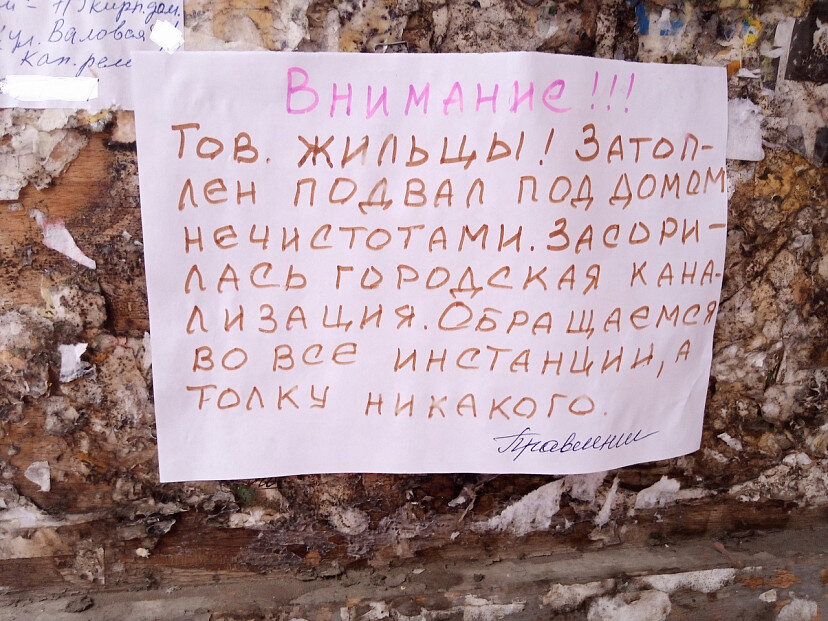 ул. Валовая
кап. рем
Внимание!!!
Тов. жильцы! Затоп-
лен подвал под домом
нечистотами. Засори-
лась городская кана-
лизация. Обращаемся
во все инстанции, а
толку никакого.
Правление